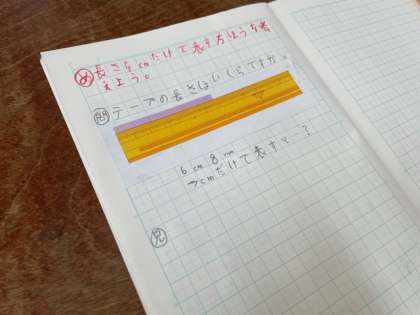 め 長さをcmだけで表す方ほうを考
えよう。
問 テープの長さはいくらですか。
6cm 8mm
→cmだけで表すと…?
見